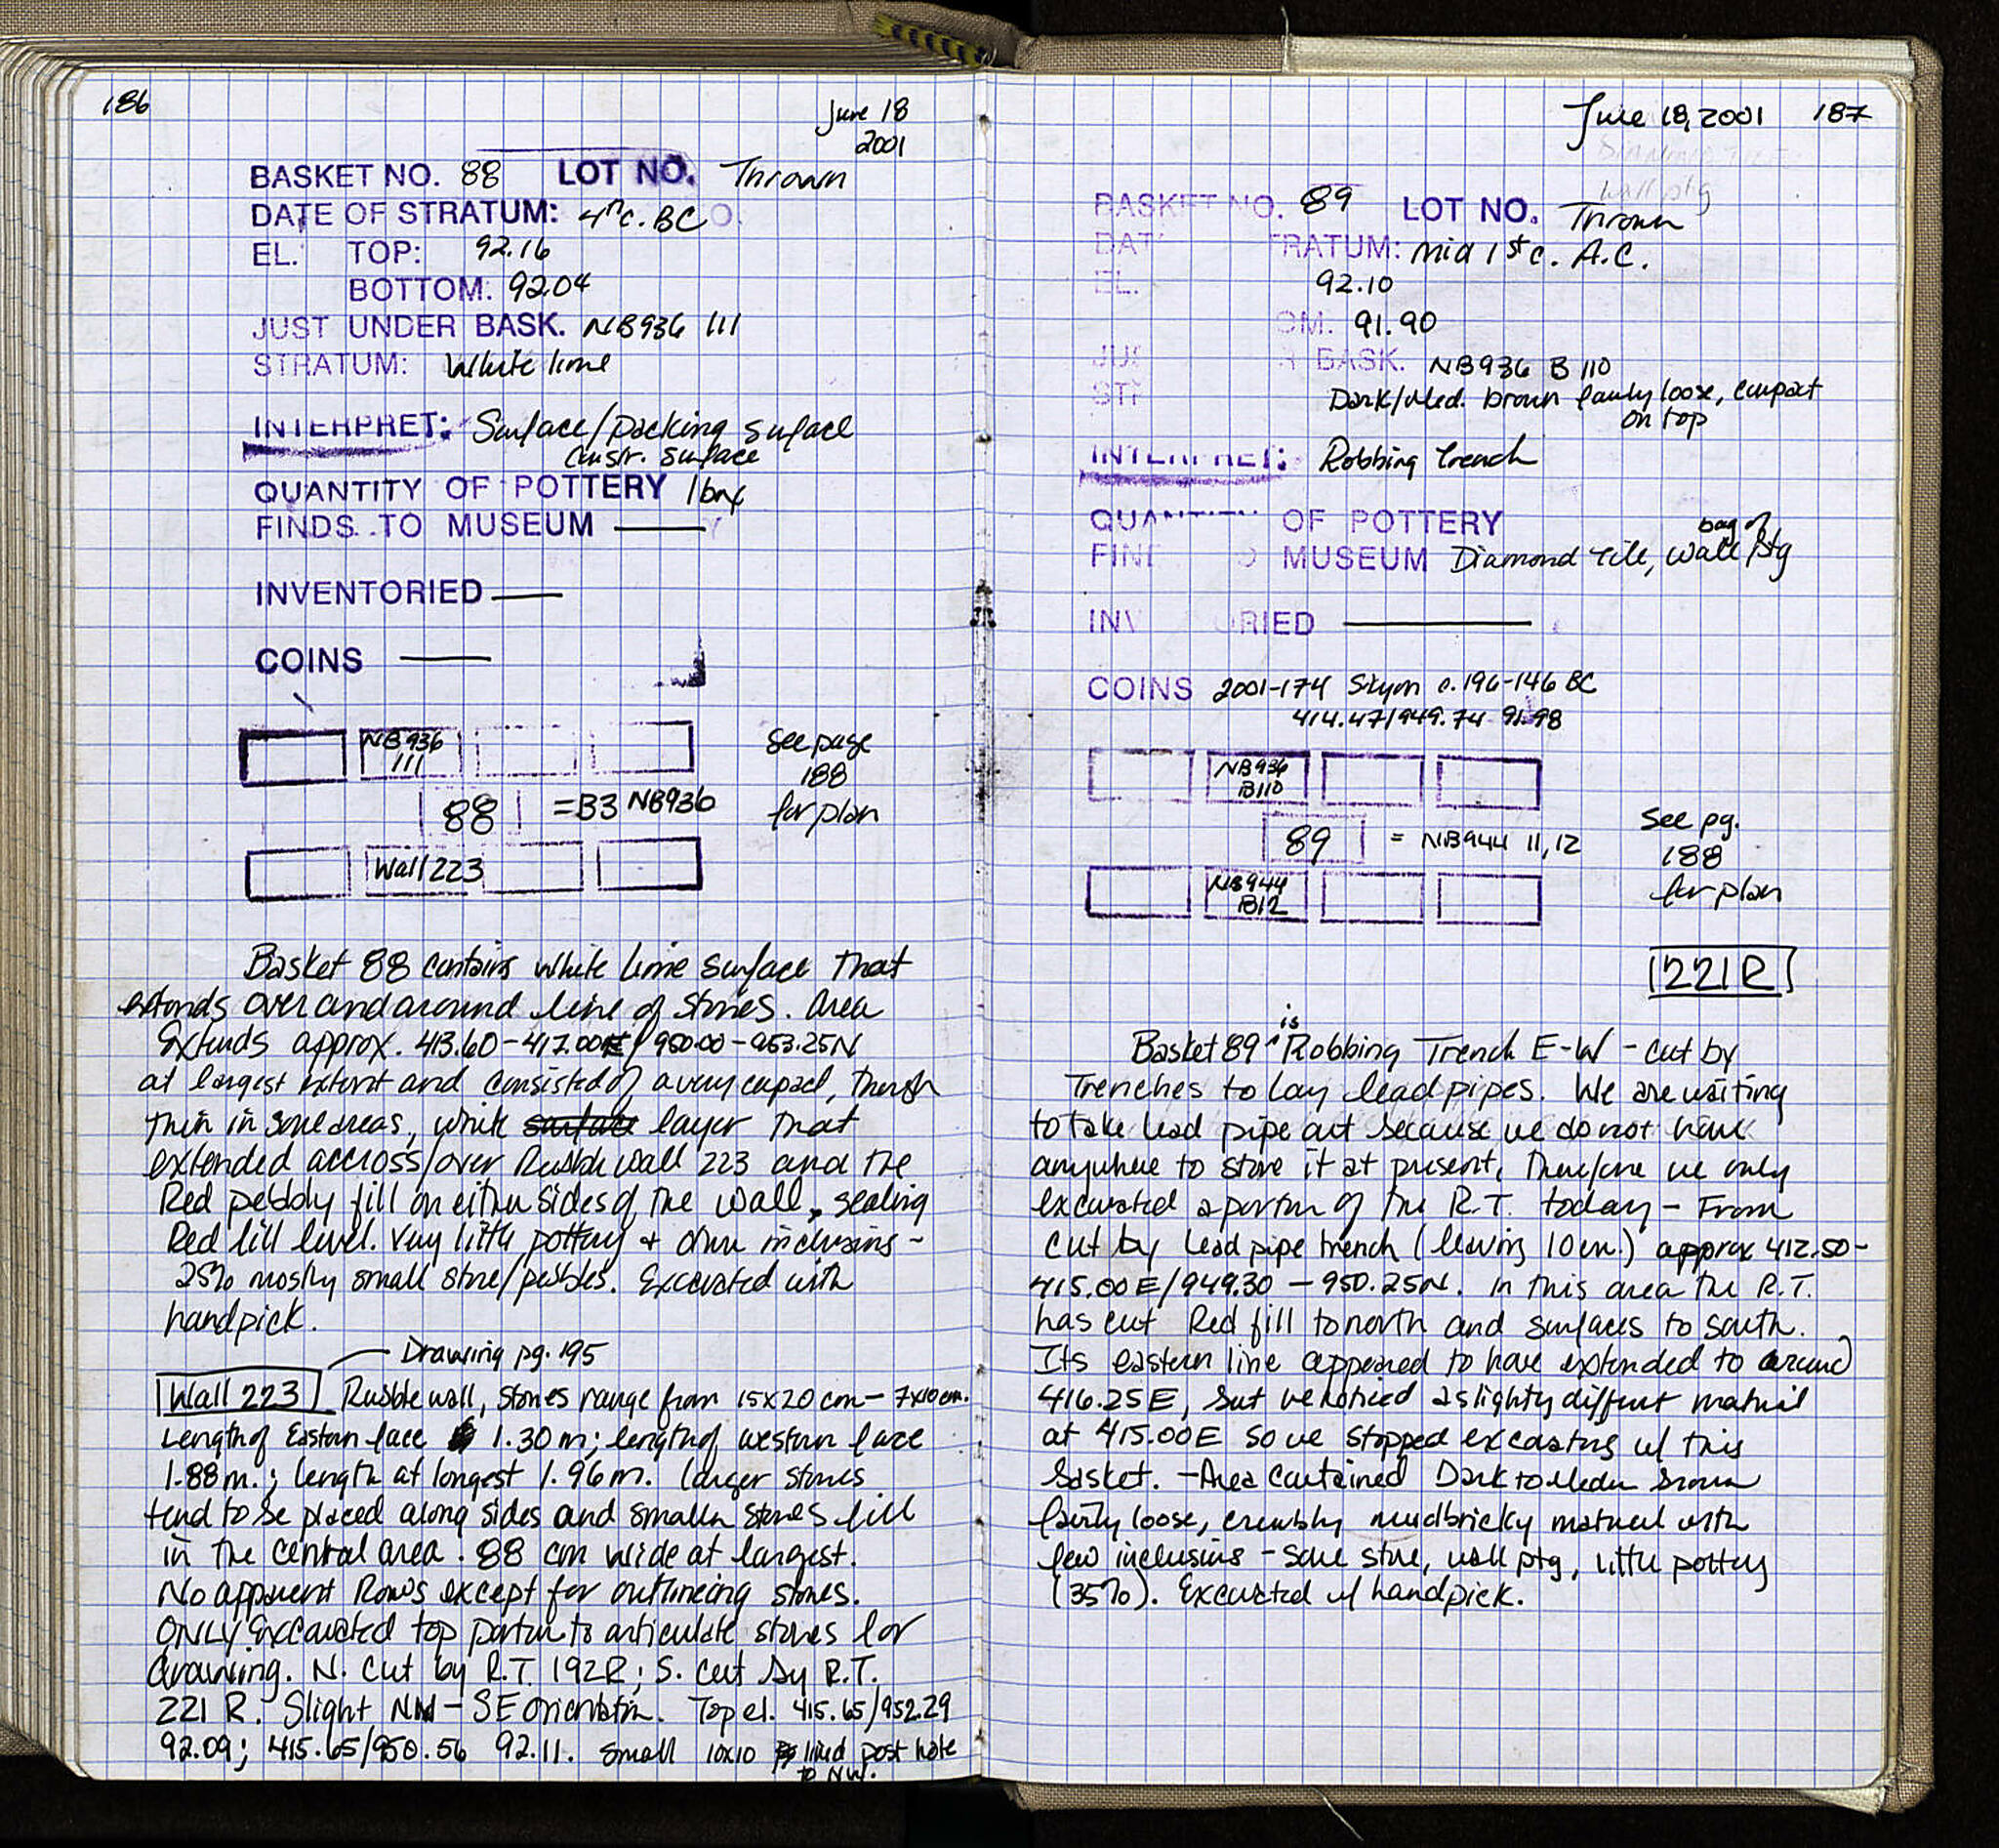 186
June 18
2001
BASKET NO. 88 LOT NO. Thrown
DATE OF STRATUM: 4th c. BC
EL. TOP: 92.16
BOTTOM: 92.04
JUST UNDER BASK. NB936 111
STRATUM: White lime
INTERPRET: Surface/packing surface
Constr. surface
QUANTITY OF POTTERY 1 bag
FINDS TO MUSEUM —
INVENTORIED —
COINS —
NB936
111
88 = B3 NB936
Wall 223
See page
188
for plan
Basket 88 contains white lime surface that
extends over and around line of stones. Area
Extends approx. 413.60-417.00E/950.00-953.25N
at largest extent and consisted of a very compact, though
thin in some areas, white surface layer that
extended accross/over Rubble wall 223 and the
Red pebbly fill on either sides of the wall, sealing
Red fill level. Very little pottery + other inclusions -
25% mostly small stone/pebbles. Excavated with
handpick.
Drawing pg. 195
Wall 223 Rubble wall, stones range from 15x20 cm - 7x10cm.
Length of Eastern face 1.30 m; length of western face
1.88m.; length at longest 1.96m. Larger stones
tend to be placed along sides and smaller stones fill
in the central area. 88 cm wide at largest.
No apparent Rows except for outlineing stones.
ONLY Excavated top portion to articulate stones for
drawing. N. cut by R.T. 192R; S. cut by R.T.
221 R. Slight NW-SE orientation. Top el. 415.65/952.29
92.09; 415.65/950.56 92.11. Small 10x10 lined post hole
to NW.
June 18, 2001 187
wall ptg
BASKET NO. 89 LOT NO. Thrown
DAT RATUM: Mid 1st c. A.C.
EL. 92.10
OM. 91.90
JUS R BASK. NB936 B 110
ST Dark/Med. brown fairly loose, compact
on top
INTERPRET: Robbing Trench
QUANTITY OF POTTERY
FIN O MUSEUM Diamond tile, bag of wall ptg
INV ORIED —
COINS 2001-174 Sikyon c. 196-146 BC
414.47/949.74 91.98
NB936
B110
89 = NB944 11, 12
NB944
B12
See pg.
188
for plan
221R
Basket 89 is Robbing Trench E-W - cut by
Trenches to lay lead pipes. We are waiting
to take lead pipe out because we do not have
anywhere to store it at present, therefore we only
excavated a portion of the R.T. today - From
cut by lead pipe trench (leaving 10cm.) approx 412.50-
415.00E/949.30 - 950.25N. In this area the R.T.
has cut Red fill to north and surfaces to south.
Its eastern line appeared to have extended to around
416.25E, but we noticed a slighty different material
at 415.00E so we stopped excavating w/ this
basket. - Area contained Dark to Medium brown
fairly loose, crumbly mudbricky material with
few inclusions - some stone, wall ptg, little pottery
(35%). Excavated w/ handpick.